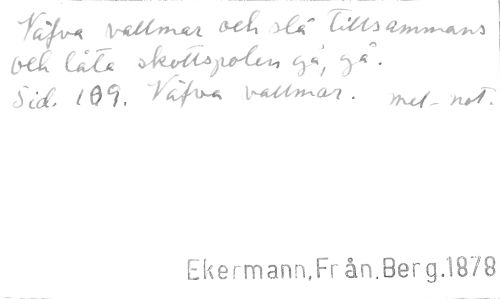 Väfva vallmar och slå tillsammans
och låta skottspolen gå, gå.
Sid. 109. Väfva vallmar. mel-not.
Ekermann,Från.Berg.1878